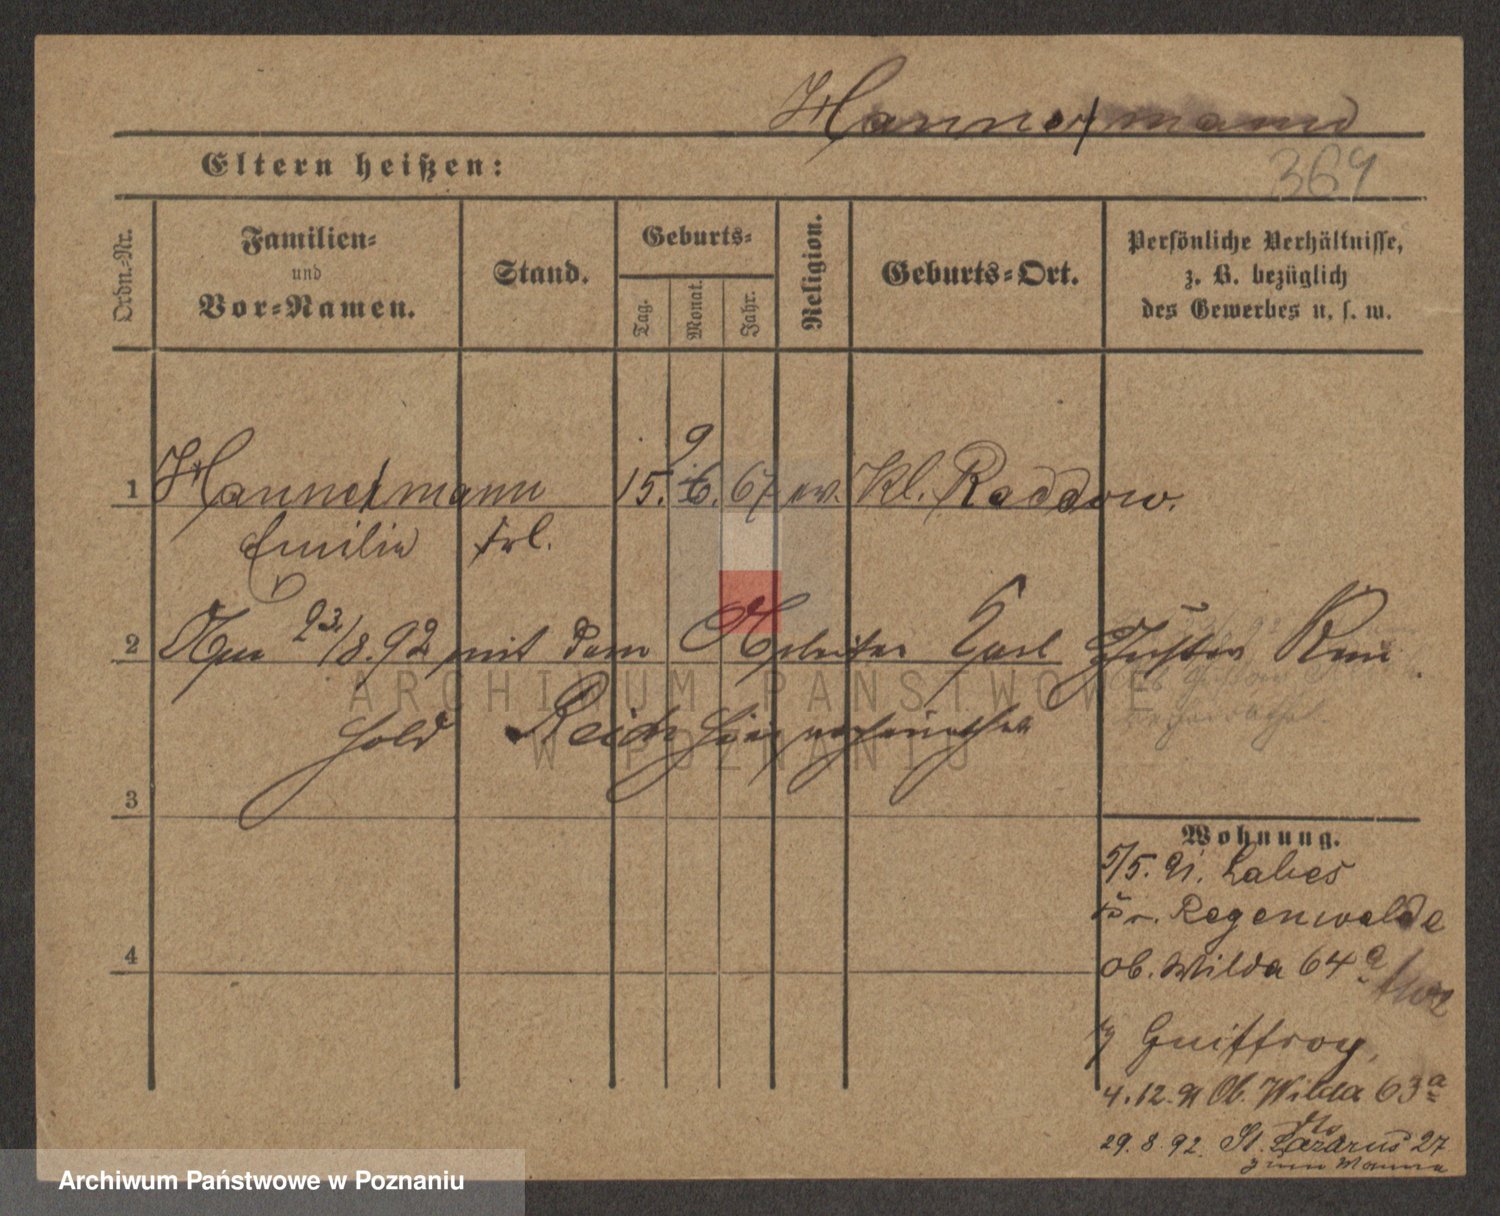 Hannemann
369
Eltern heißen:
Ordn.-Nr.
Familien-
und
Vor-Namen.
Stand.
Geburts-
Tag.
Monat.
Jahr.
Religion.
Geburts-Ort.
Persönliche Verhältnisse,
z. B. bezüglich
des Gewerbes u. s. w.
9
1 Hannemann 15. 6. 67 ev. Kl. Raddow.
Emilie Frl.
2 Am 23/8.92 mit dem Arbeiter Carl Gustav Rein
hold Reich hier verheirathet
3
4
Wohnung.
5/5. 91. Labes
Kr. Regenwalde
Ob. Wilda 64a
4.12.91 Ob. Wilda 63a
29.8.92. St. Lazarus 27
zum Manne
ARCHIWUM PAŃSTWOWE
W POZNANIU
Archiwum Państwowe w Poznaniu